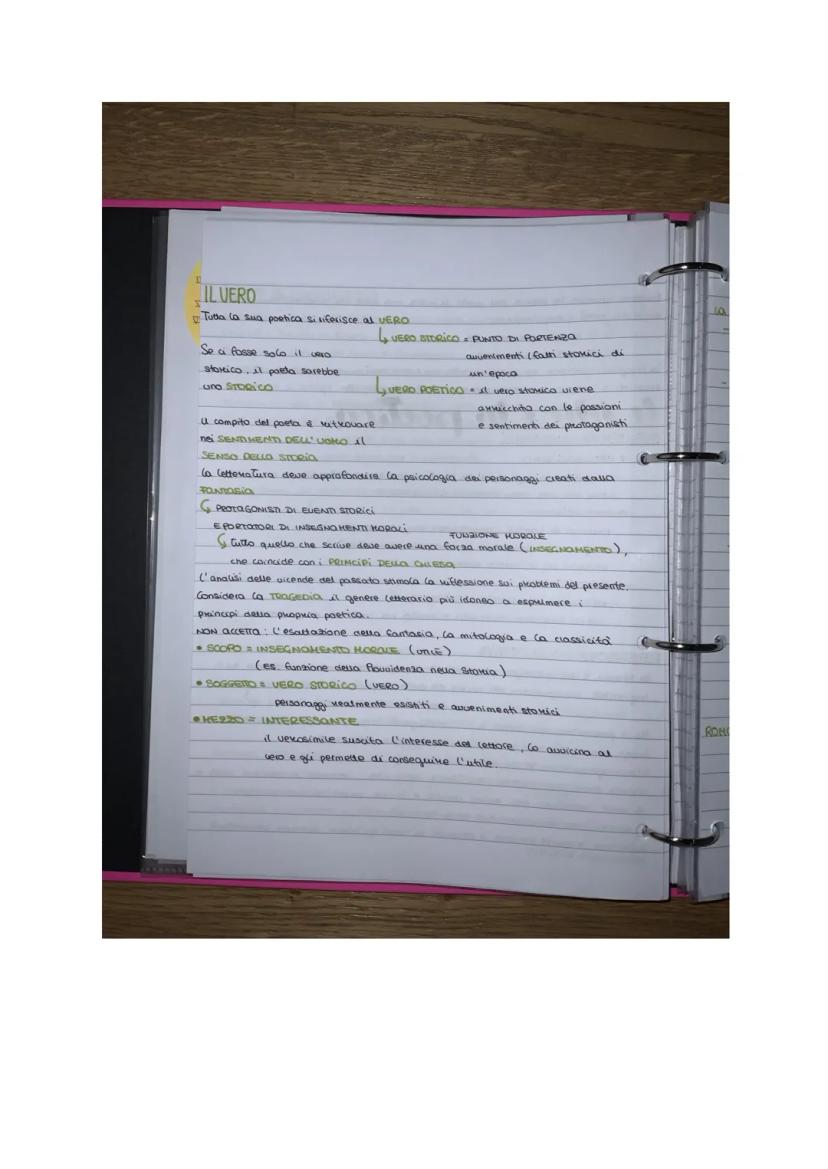 IL VERO
Tutta la sua poetica si riferisce al VERO
↳ VERO STORICO = PUNTO DI PARTENZA
avvenimenti / fatti storici di
un'epoca
Se ci fosse solo il vero
storico, il poeta sarebbe
uno STORICO
↳ VERO POETICO = il vero storico viene
arricchito con le passioni
e sentimenti dei protagonisti
Il compito del poeta è ritrovare
nei SENTIMENTI DELL'UOMO il
SENSO DELLA STORIA
La letteratura deve approfondire la psicologia dei personaggi creati dalla
FANTASIA
↳ PROTAGONISTI DI EVENTI STORICI
E PORTATORI DI INSEGNAMENTI MORALI
FUNZIONE MORALE
↳ tutto quello che scrive deve avere una forza morale (INSEGNAMENTO),
che coincide con i PRINCIPI DELLA CHIESA
L'analisi delle vicende del passato stimola la riflessione sui problemi del presente.
Considera la TRAGEDIA il genere letterario più idoneo a esprimere i
principi della propria poetica.
NON ACCETTA: l'esaltazione della fantasia, la mitologia e la classicità
• SCOPO = INSEGNAMENTO MORALE (UTILE)
(es. funzione della Provvidenza nella Storia)
• SOGGETTO = VERO STORICO (VERO)
personaggi realmente esistiti e avvenimenti storici
• MEZZO = INTERESSANTE
il verosimile suscita l'interesse del lettore, lo avvicina al
vero e gli permette di conseguire l'utile.